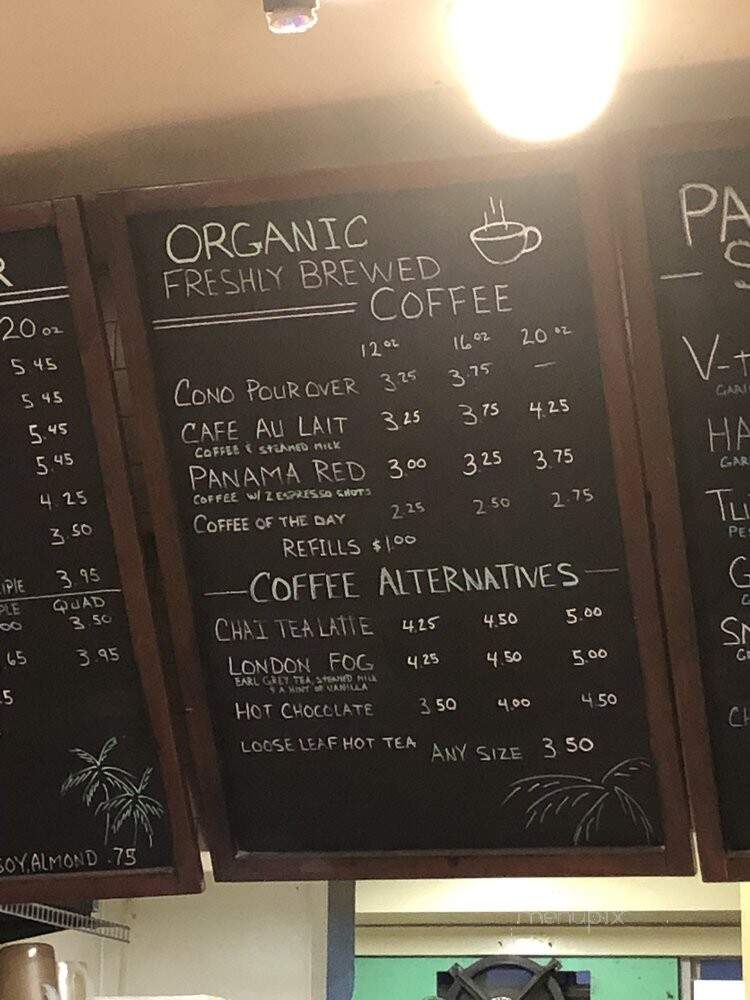 R
20 oz
5.45
5.45
5.45
5.45
4.25
3.50
3.95
QUAD
3.50
.65 3.95
SOY, ALMOND .75
ORGANIC
FRESHLY BREWED
COFFEE
12 oz 16 oz 20 oz
CONO POUR OVER 3.25 3.75 —
CAFE AU LAIT 3.25 3.75 4.25
COFFEE & STEAMED MILK
PANAMA RED 3.00 3.25 3.75
COFFEE W/ 2 ESPRESSO SHOTS
COFFEE OF THE DAY 2.25 2.50 2.75
REFILLS $1.00
COFFEE ALTERNATIVES
CHAI TEA LATTE 4.25 4.50 5.00
LONDON FOG 4.25 4.50 5.00
EARL GREY TEA, STEAMED MILK
& A HINT OF VANILLA
HOT CHOCOLATE 3.50 4.00 4.50
LOOSE LEAF HOT TEA ANY SIZE 3.50
PA
S
V-
HA
TU
G
SN
menupix